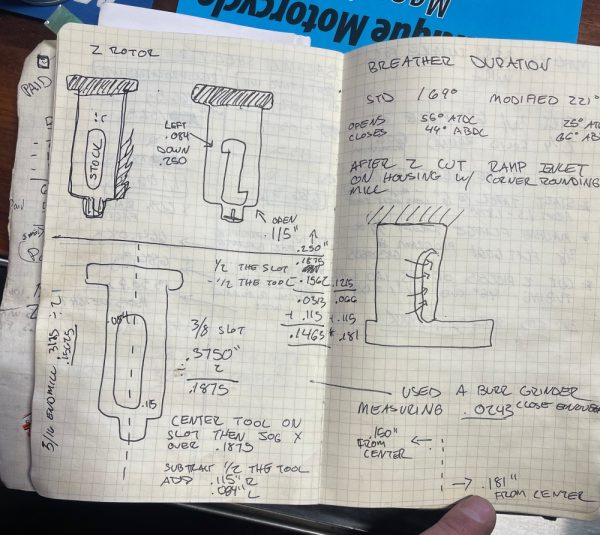 Mec
nique Motorcycle
PAID
Z ROTOR
STOCK
LEFT
.084
DOWN
.250
OPEN
.115"
.250"
1/2 THE SLOT .1875
-1/2 THE TOOL .1562 .1215
.0313 .066
+ .115 +.115
.1463 .181
3/8 SLOT
.3750"
÷ 2
.1875
.084
.115
5/16 ENDMILL .3125 ÷ 2
.15625
CENTER TOOL ON
SLOT THEN JOG X
OVER .1875
SUBTRACT 1/2 THE TOOL
ADD .115" R
.084" L
BREATHER DURATION
STD 169° MODIFIED 221°
OPENS 55° ATDC 25° AT
CLOSES 44° ABDC 66° AB
AFTER Z CUT RAMP INLET
ON HOUSING W/ CORNER ROUNDING
MILL
USED A BURR GRINDER
MEASURING .0243 CLOSE ENOUGH
.150"
FROM
CENTER
.181"
FROM CENTER